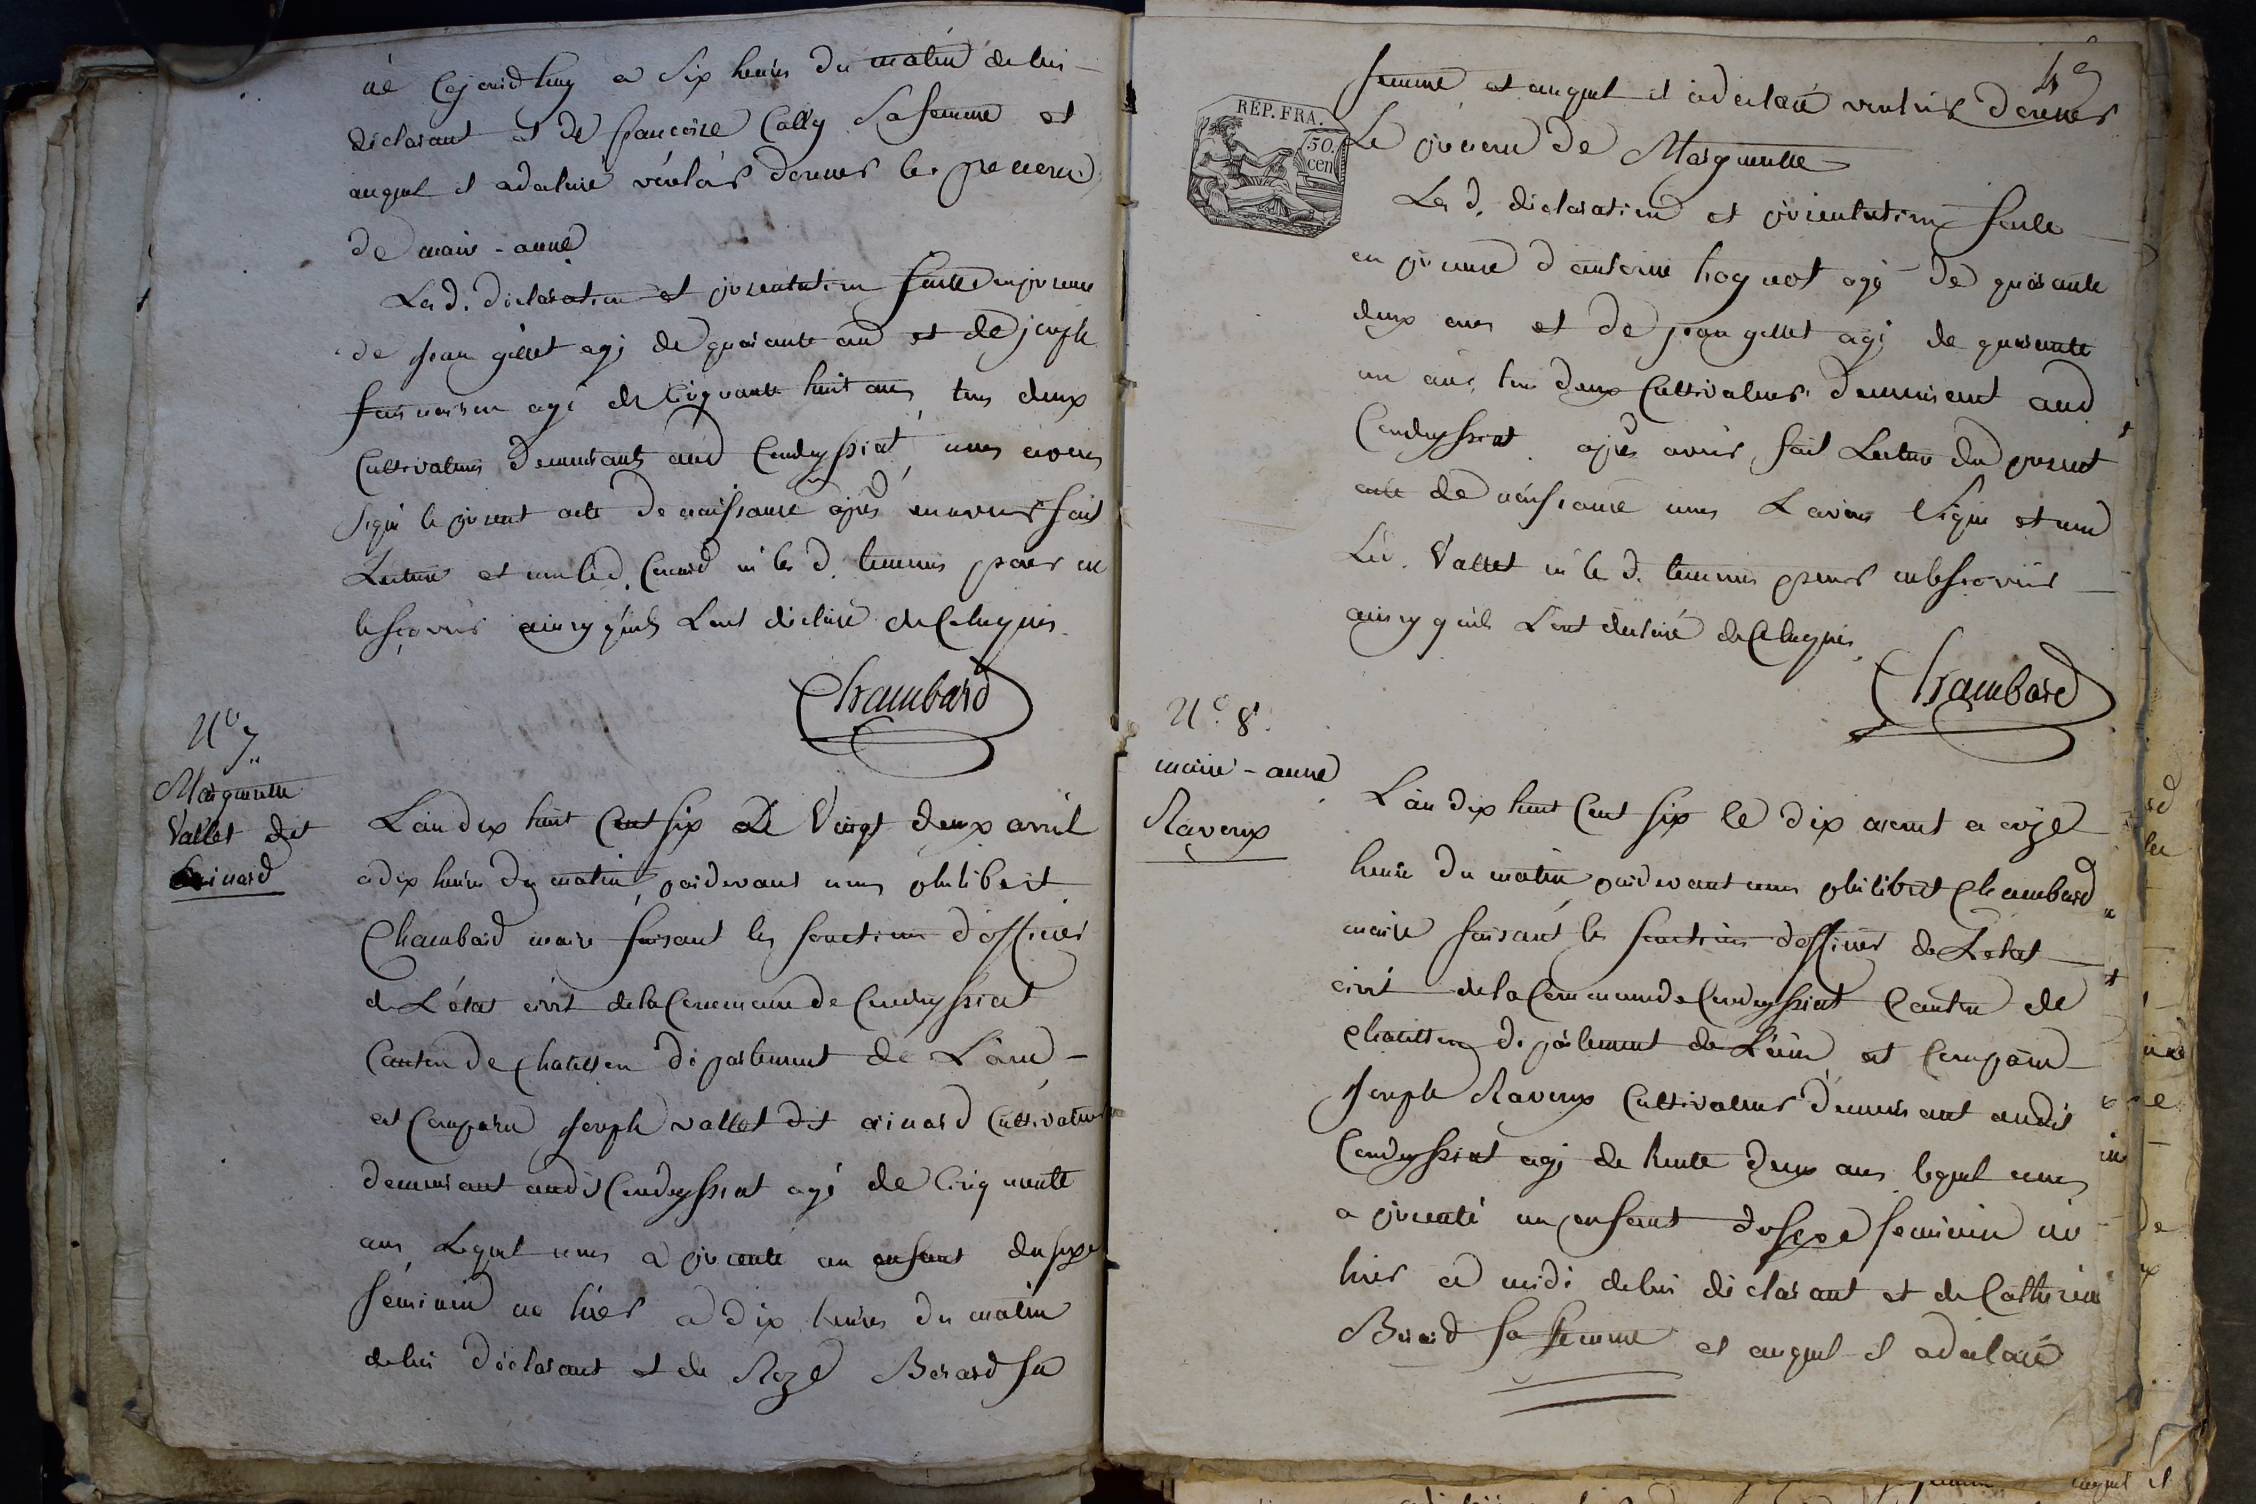 né cejourdhuy a six heures du matin de lui
déclarant et de francoise Cally sa femme et
auquel il a declaré vouloir donner le prenom
de marie-anne
Les d. déclaration et présentation faitte en presence
de jean gillet agé de quarante ans et de joseph
agé de Cinquante huit ans, tous deux
Cultivateurs demeurants aud Condeyssiat, nous avons
signé le present acte de naissance après en avoir fait
Lecture et non led. ni les d. temoins pour ne
le sçavoir ainsy qu'ils L'ont déclaré de Ce enquis.
Chambard
N.o 7
Marguerite
Vallet dit
L'an dix huit Cent six Le Vingt deux avril
a dix heures du matin, pardevant nous philibert
Chambard maire faisant les fonctions d'officier
de L'état civil de la Commune de Condeyssiat
Canton de Chatillon département de L'ain
est Comparu joseph vallet dit Cultivateur
demeurant audit Condeyssiat agé de Cinquante
ans, Lequel nous a présenté un enfant du sexe
féminin né hier a dix heures du matin
de lui déclarant et de Roze Berard sa
4e
REP. FRA.
50.
cen
femme et auquel il a declaré vouloir donner
Le prenom de Marguerite
Les d. déclaration et présentation faite
en presence d'antoine hognot agé de quarante
deux ans et de jean gillet agé de quarante
un ans, tous deux Cultivateurs demeurant aud
Condeyssiat. après avoir fait Lecture du present
acte de naissance nous L'avons signé et non
Led. Vallet ni les d. temoins pour ne le sçavoir
ainsy qu'ils L'ont declaré de Ce enquis.
Chambard
N.o 8.
marie-anne
Raveux
L'an dix huit Cent six le dix aoust a onze
heure du matin pardevant nous philibert Chambard
maire faisant les fonctions d'officier de L'etat
civil de la Commune de Condeyssiat Canton de
Chatillon département de L'ain est Comparu
joseph Raveux Cultivateur demeurant audit
Condeyssiat agé de trente deux ans lequel nous
a présenté un enfant du sexe feminin né
hier a midi de lui déclarant et de Catherine
Berard sa femme et auquel il a declaré